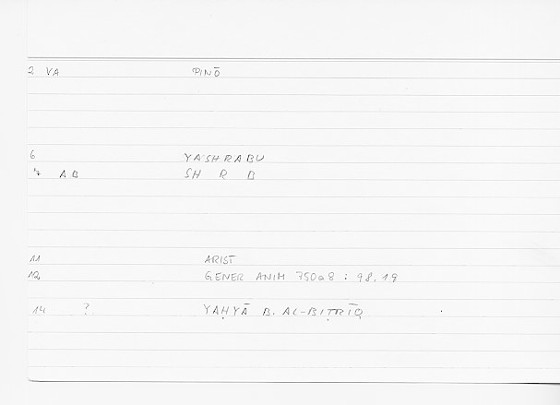 2 VA ΠΙΝΩ
6 YASHRABU
7 AB SH R B
11 ARIST
12 GENER ANIM 750a8 : 98.19
14 ? YAḤYĀ B. AL-BIṬRĪQ